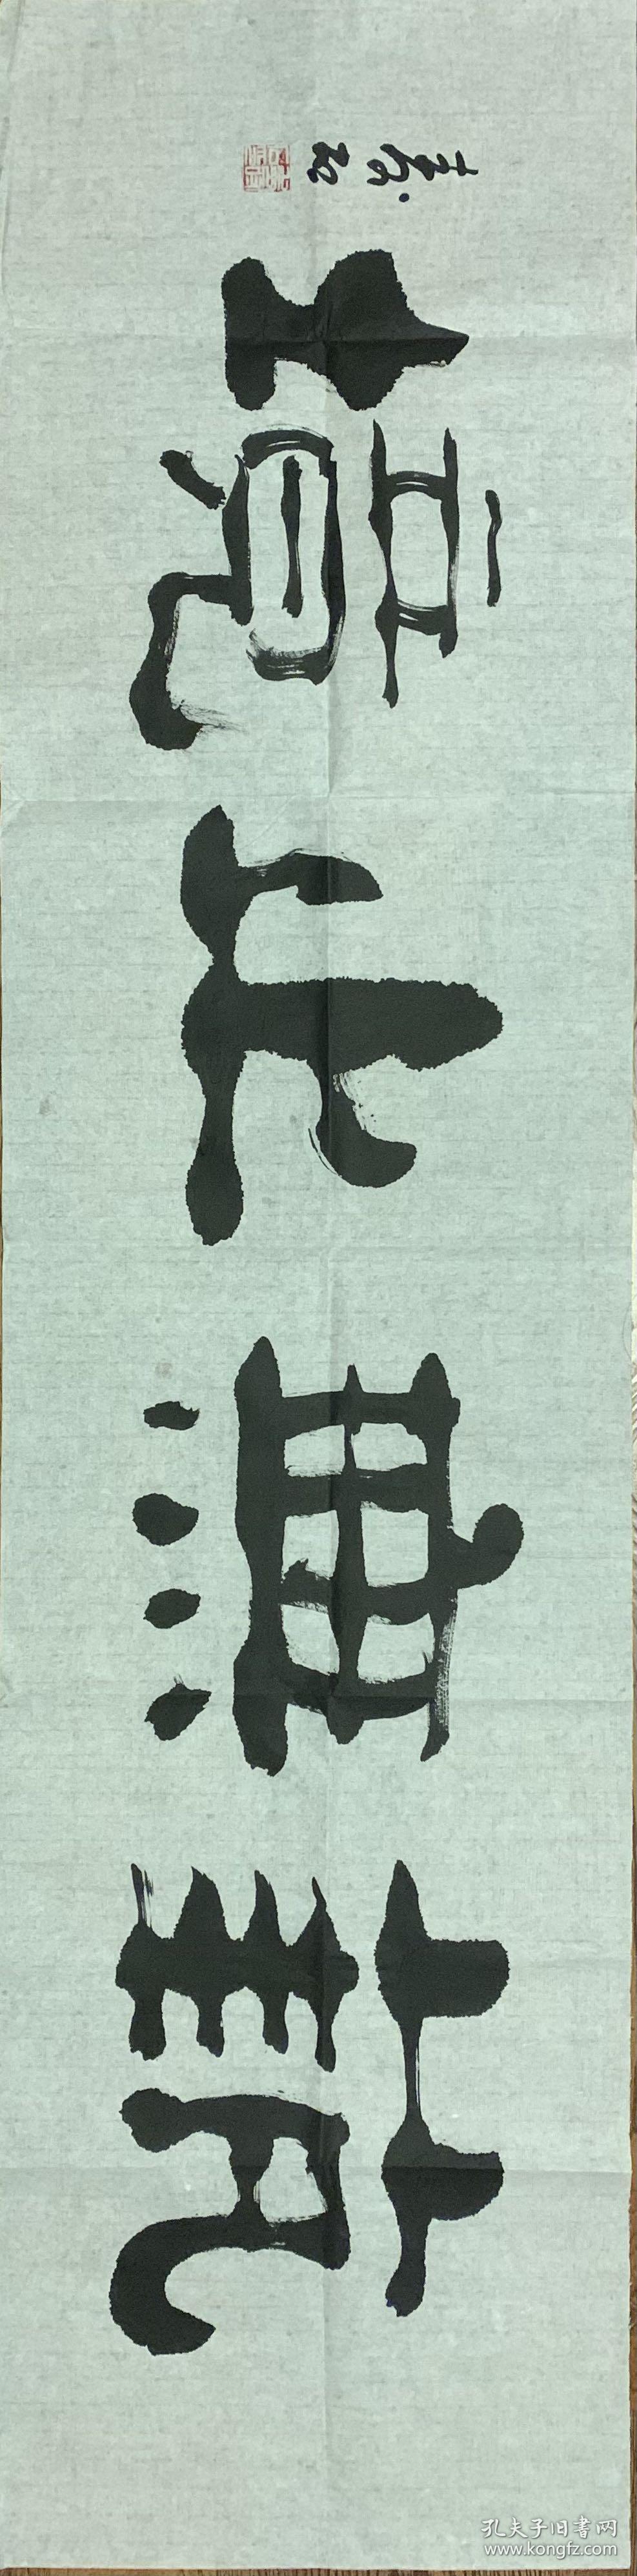 藝無止境
孔夫子旧书网
www.kongfz.com